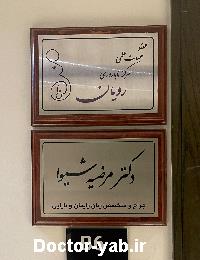 عضو
هیات علمی
مرکز ناباروری
رویان
دکتر مرضیه شیوا
جراح و متخصص زنان، زایمان و نازایی
Doctor-yab.ir